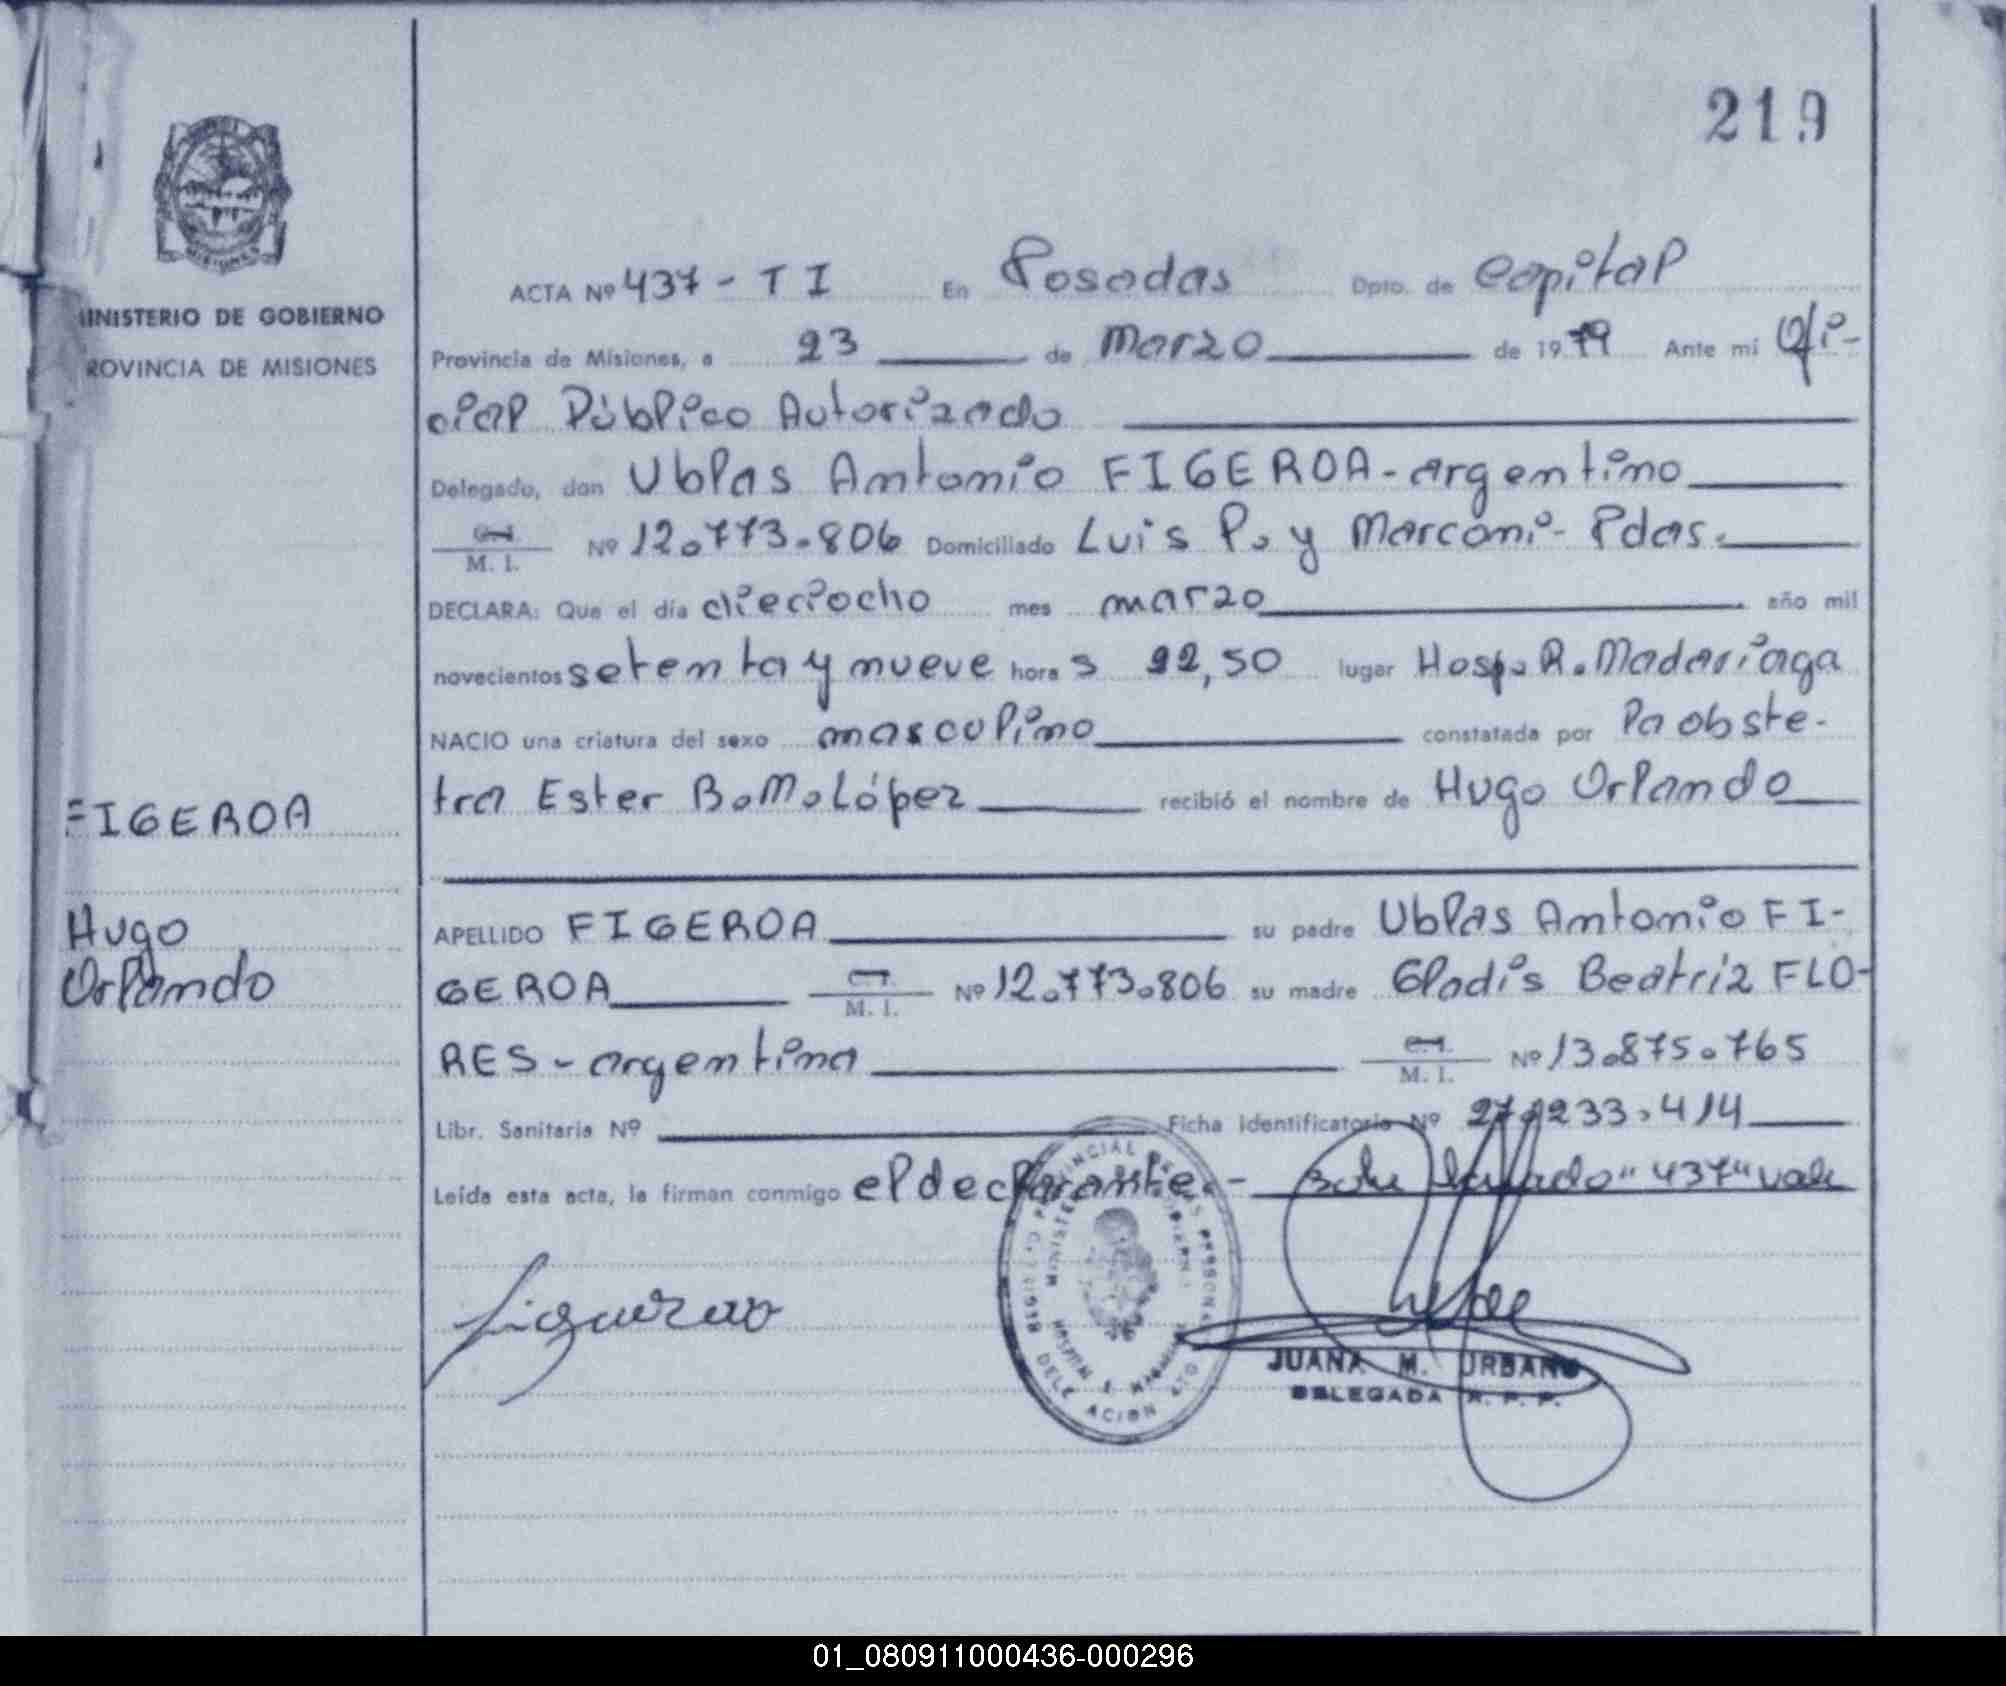 219
MINISTERIO DE GOBIERNO
PROVINCIA DE MISIONES
ACTA Nº 437 - T I En Posadas Dpto. de Capital
Provincia de Misiones, a 23 de marzo de 1979 Ante mi Ofi-
cial Público Autorizado
Delegado, don Ublas Antonio FIGEROA - argentino
C.I. M. I. Nº 12.773.806 Domiciliado Luis P. y Marconi - Pdas.
DECLARA: Que el día dieciocho mes marzo año mil
novecientos setenta y nueve hora s 22,50 lugar Hosp. R. Madariaga
NACIO una criatura del sexo masculino constatada por la obste-
tra Ester B. M. López recibió el nombre de Hugo Orlando
FIGEROA
Hugo
Orlando
APELLIDO FIGEROA su padre Ublas Antonio FI-
GEROA C.I. M. I. Nº 12.773.806 su madre Gladis Beatriz FLO-
RES - argentina C.I. M. I. Nº 13.875.765
Libr. Sanitaria Nº Ficha identificatoria Nº 27.233.414
Leída esta acta, la firman conmigo el declarante.- "437" vale
MINISTERIO
DELEGACION
JUANA M. URBANO
DELEGADA R. P. P.
01_080911000436-000296